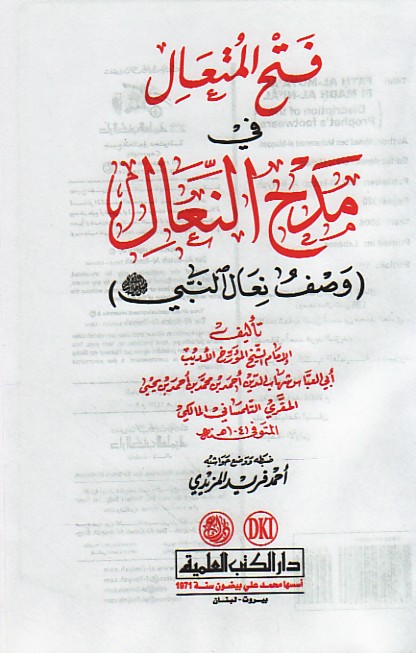 فتح المتعال
في
مدح النعال
(وصف نعال النبي ﷺ)
تأليف
الإمام الشيخ المؤرخ الأديب
أبي العباس شهاب الدين أحمد بن محمد بن أحمد بن يحيى
المقري التلمساني المالكي
المتوفى ١٠٤١ هـ
ضبطه ووضع حواشيه
أحمد فريد المزيدي
DKI
دار الكتب العلمية
أسسها محمد علي بيضون سنة 1971
بيروت - لبنان